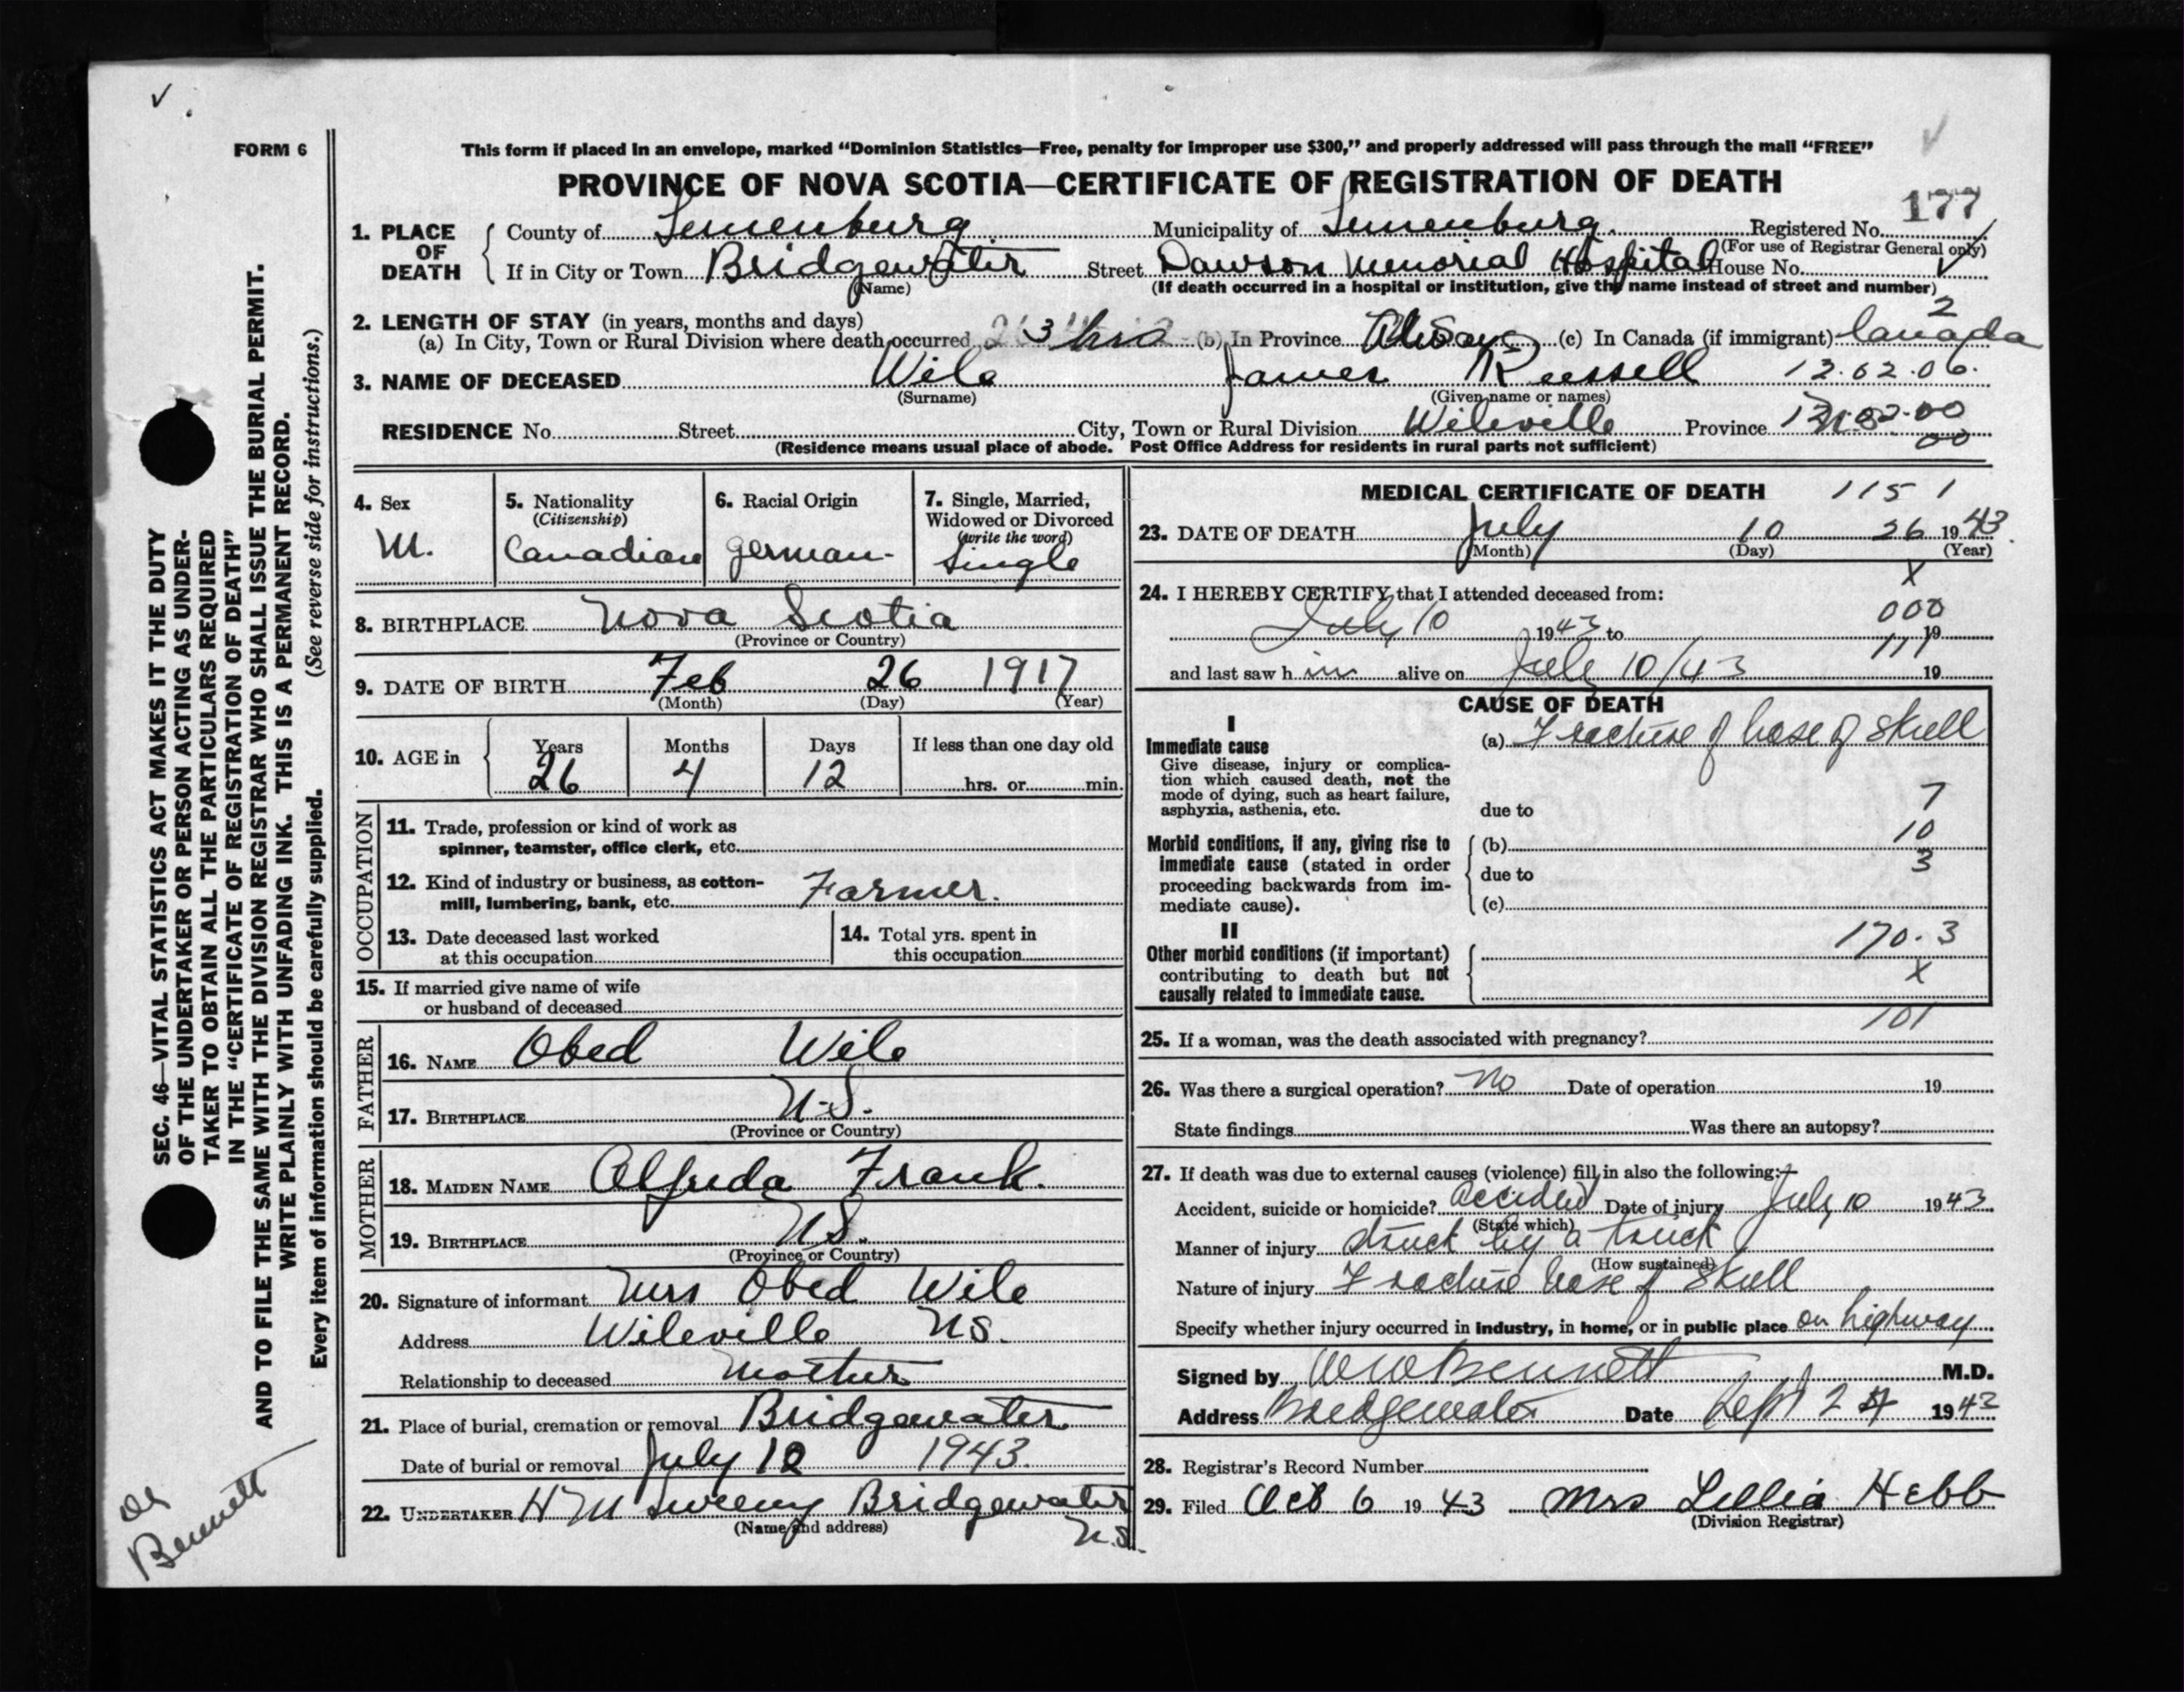 FORM 6
This form if placed in an envelope, marked “Dominion Statistics—Free, penalty for improper use $300,” and properly addressed will pass through the mail “FREE”
PROVINCE OF NOVA SCOTIA—CERTIFICATE OF REGISTRATION OF DEATH
177
1. PLACE OF DEATH County of Lunenburg Municipality of Lunenburg. Registered No.
(For use of Registrar General only)
If in City or Town Bridgewater Street Dawson Memorial Hospital House No.
(Name) (If death occurred in a hospital or institution, give the name instead of street and number)
2. LENGTH OF STAY (in years, months and days) 2
(a) In City, Town or Rural Division where death occurred 3 hrs (b) In Province Always (c) In Canada (if immigrant) Canada
3. NAME OF DECEASED Wile James Russell 13.02.06.
(Surname) (Given name or names)
RESIDENCE No. Street City, Town or Rural Division Wileville Province
(Residence means usual place of abode. Post Office Address for residents in rural parts not sufficient)
4. Sex M.
5. Nationality (Citizenship) Canadian
6. Racial Origin German-
7. Single, Married, Widowed or Divorced (write the word) Single
8. BIRTHPLACE Nova Scotia
(Province or Country)
9. DATE OF BIRTH Feb 26 1917
(Month) (Day) (Year)
10. AGE in Years 26 Months 4 Days 12 If less than one day old hrs. or min.
OCCUPATION
11. Trade, profession or kind of work as
spinner, teamster, office clerk, etc.
12. Kind of industry or business, as cotton-
mill, lumbering, bank, etc. Farmer.
13. Date deceased last worked
at this occupation
14. Total yrs. spent in
this occupation
15. If married give name of wife
or husband of deceased
FATHER
16. NAME Obed Wile
17. BIRTHPLACE N.S.
(Province or Country)
MOTHER
18. MAIDEN NAME Alfreda Frank.
19. BIRTHPLACE N.S.
(Province or Country)
20. Signature of informant Mrs Obed Wile
Address Wileville NS.
Relationship to deceased Mother
21. Place of burial, cremation or removal Bridgewater
Date of burial or removal July 12 1943.
22. UNDERTAKER H M Sweeny Bridgewater
(Name and address) N.S.
MEDICAL CERTIFICATE OF DEATH 1151
23. DATE OF DEATH July 10 26 1943.
(Month) (Day) (Year)
X
24. I HEREBY CERTIFY that I attended deceased from:
000
July 10 1943 to 19
111
and last saw h im alive on July 10/43 19
CAUSE OF DEATH
I
Immediate cause (a) Fracture of base of skull
Give disease, injury or complica-
tion which caused death, not the
mode of dying, such as heart failure,
asphyxia, asthenia, etc. due to 7
10
Morbid conditions, if any, giving rise to (b)
immediate cause (stated in order 3
proceeding backwards from im- due to
mediate cause). (c)
II
170.3
Other morbid conditions (if important)
contributing to death but not X
causally related to immediate cause.
101
25. If a woman, was the death associated with pregnancy?
26. Was there a surgical operation? No Date of operation 19
State findings Was there an autopsy?
27. If death was due to external causes (violence) fill in also the following:—
Accident, suicide or homicide? accident Date of injury July 10 1943
(State which)
Manner of injury struck by a truck
(How sustained)
Nature of injury Fracture base of skull
Specify whether injury occurred in industry, in home, or in public place on highway
Signed by Bennett M.D.
Address Bridgewater Date Sept 24 1943
28. Registrar's Record Number
29. Filed Oct 6 1943 Mrs Lillia Hebb
(Division Registrar)
SEC. 46—VITAL STATISTICS ACT MAKES IT THE DUTY
OF THE UNDERTAKER OR PERSON ACTING AS UNDER-
TAKER TO OBTAIN ALL THE PARTICULARS REQUIRED
IN THE “CERTIFICATE OF REGISTRATION OF DEATH”
AND TO FILE THE SAME WITH THE DIVISION REGISTRAR WHO SHALL ISSUE THE BURIAL PERMIT.
WRITE PLAINLY WITH UNFADING INK. THIS IS A PERMANENT RECORD.
Every item of information should be carefully supplied. (See reverse side for instructions.)
Bennett